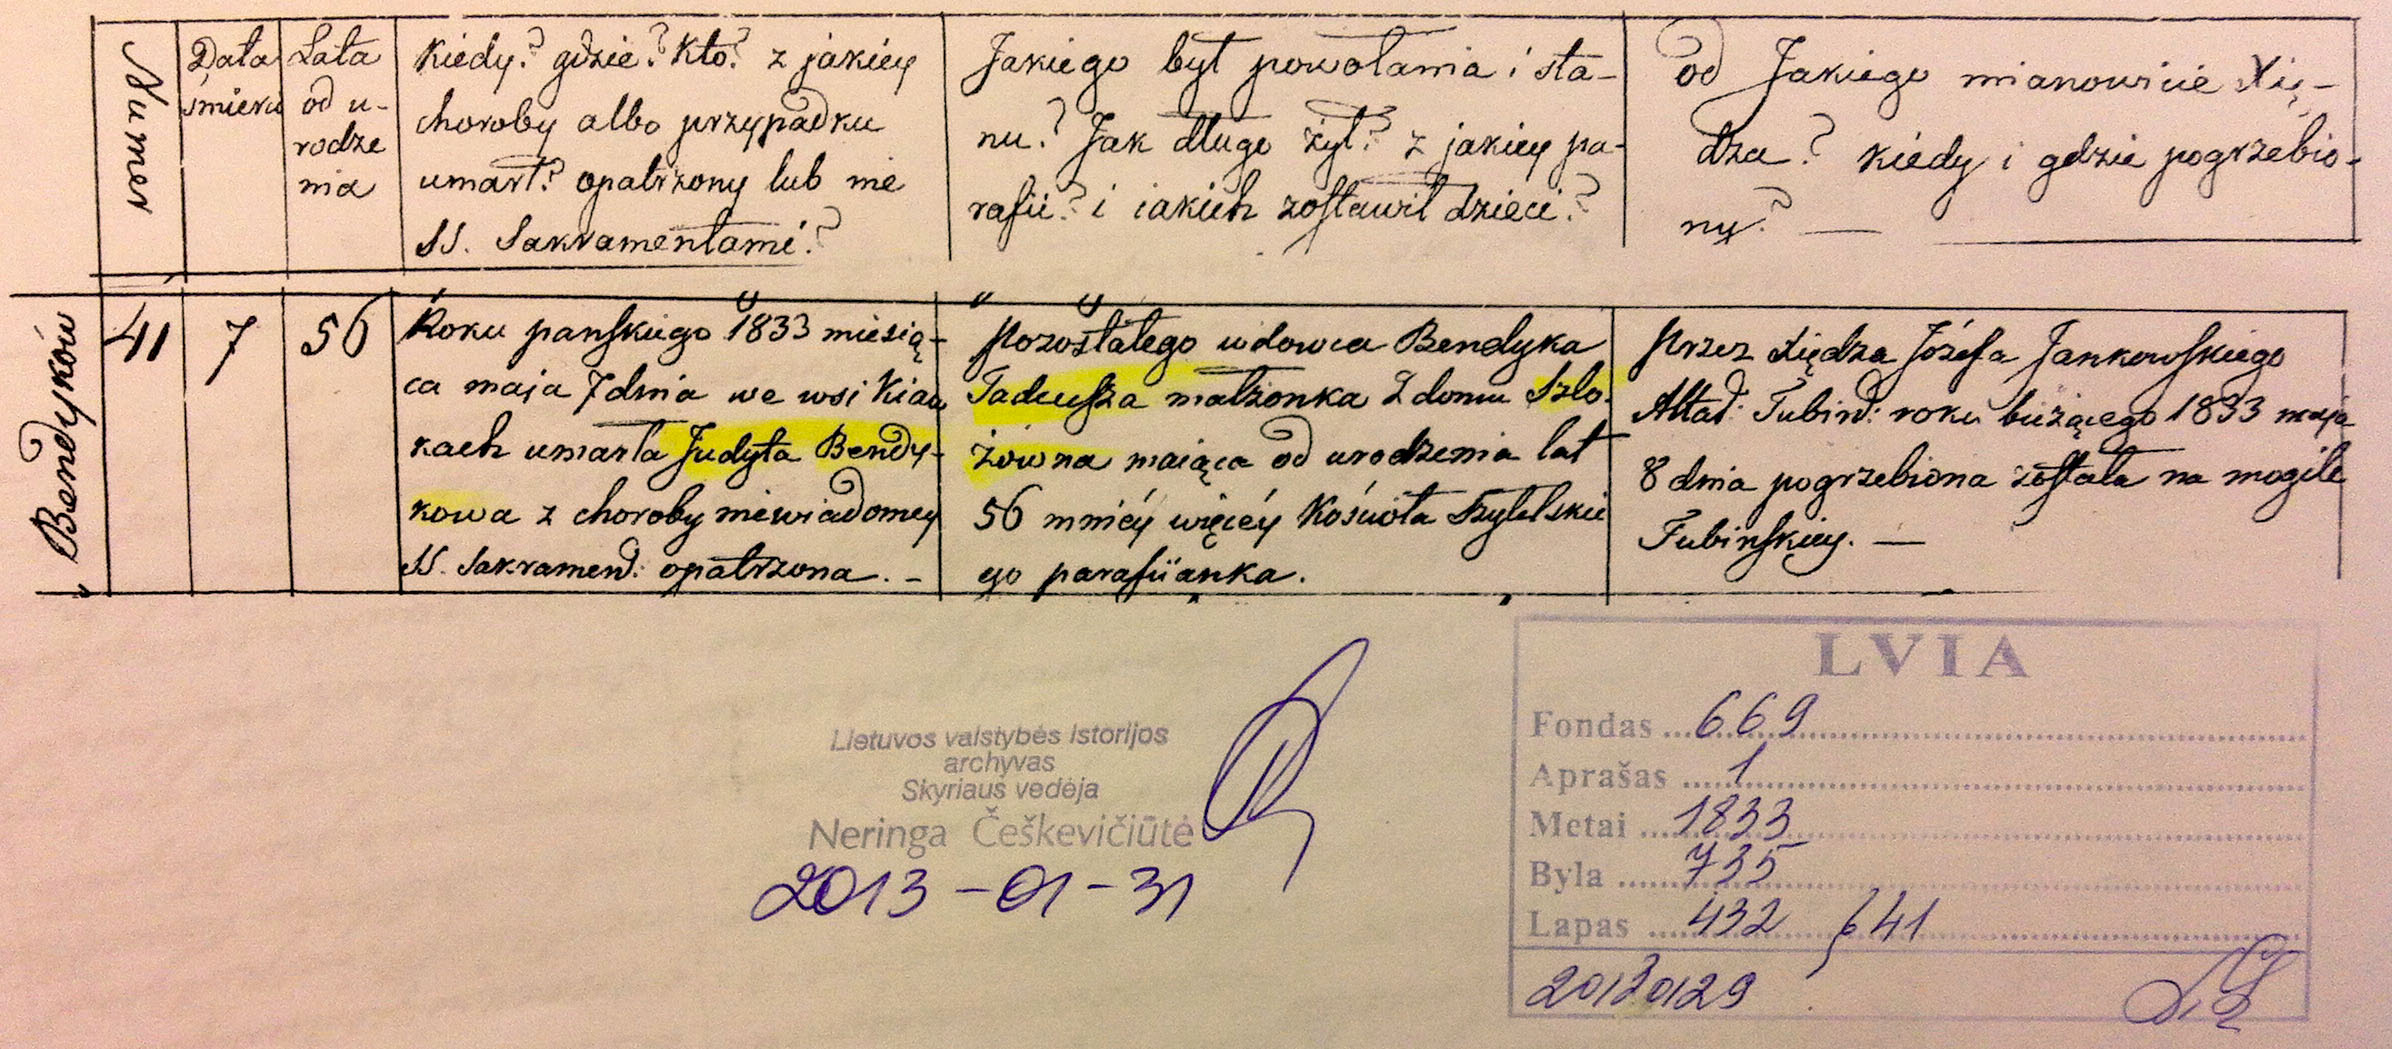 Numer
Data
śmierci
Lata
od u-
rodze
nia
Kiedy? gdzie? Kto? z jakiey
choroby albo przypadku
umarł? opatrzony lub nie
SS. Sakramentami?
Jakiego był powołania i sta-
nu? Jak długo żył? z jakiey pa-
rafii? i iakich zostawił dzieci?
od Jakiego mianowicie Xię-
dza? Kiedy i gdzie pogrzebio-
ny? —
Bendyków
41
7
56
Roku panskiego 1833 miesią-
ca maja 7 dnia we wsi
kach umarła Judyta Bendy-
kowa z choroby niewiadomey
SS. Sakramend: opatrzona. –
Pozostałego wdowca Bendyka
Tadeusza małżonka z domu Szlo-
żowna maiąca od urodzenia lat
56 mniéy więcéy Kościoła Szylelskie
go parafiianka.
Przez Xiędza Józefa Jankowskiego
Altad: Tubind: roku bieżącego 1833 maja
8 dnia pogrzebiona została na mogile
Tubinskiey. —
Lietuvos valstybės istorijos
archyvas
Skyriaus vedėja
Neringa Češkevičiūtė
2013-01-31
LVIA
Fondas 669
Aprašas 1
Metai 1833
Byla 735
Lapas 432, 641
20130129